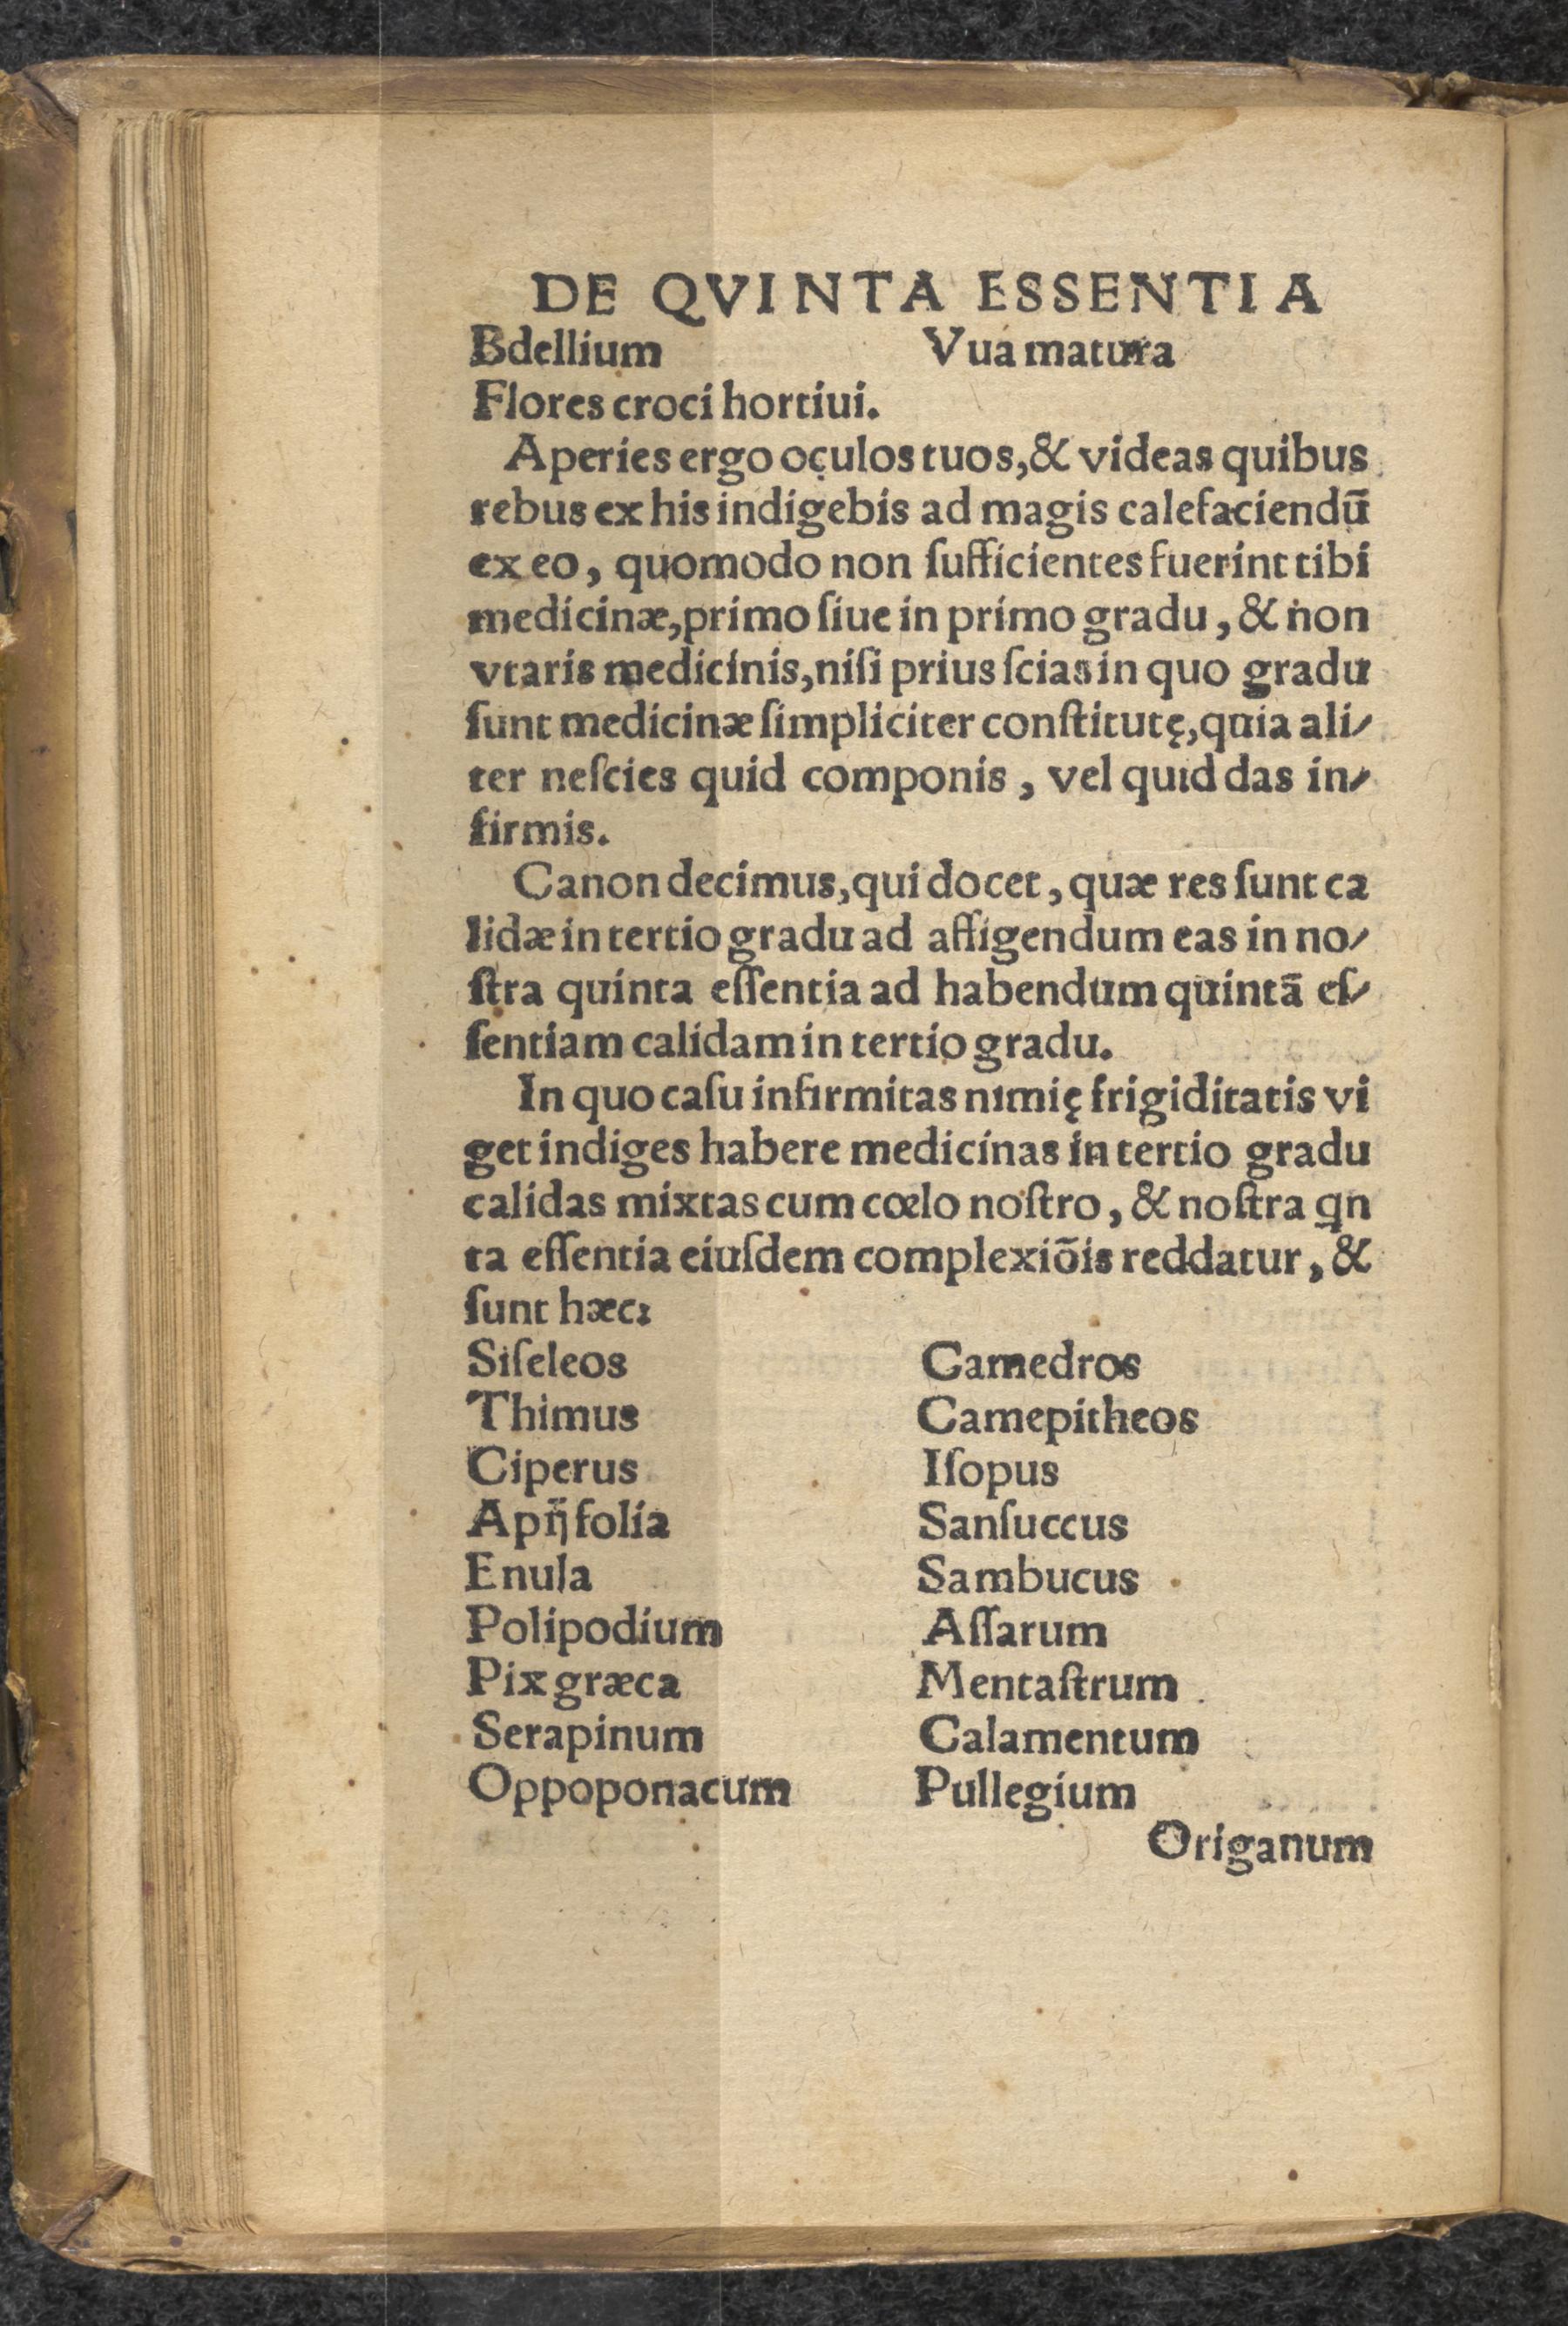 DE QVINTA ESSENTIA
Bdellium Vua matura
Flores croci hortiui.
Aperies ergo oculos tuos,& videas quibus
rebus ex his indigebis ad magis calefaciendū
ex eo, quomodo non ſufficientes fuerint tibi
medicinæ,primo ſiue in primo gradu, & non
vtaris medicinis,niſi prius ſcias in quo gradu
ſunt medicinæ ſimpliciter conſtitutę,quia ali-
ter neſcies quid componis, vel quid das in-
firmis.
Canon decimus,qui docet, quæ res ſunt ca
lidæ in tertio gradu ad affigendum eas in no-
ſtra quinta eſſentia ad habendum quintā eſ-
ſentiam calidam in tertio gradu.
In quo caſu infirmitas nimię frigiditatis vi
get indiges habere medicinas in tertio gradu
calidas mixtas cum cœlo noſtro, & noſtra qn
ta eſſentia eiuſdem complexiōis reddatur, &
ſunt hæc:
Siſeleos Camedros
Thimus Camepitheos
Ciperus Iſopus
Apij folia Sanſuccus
Enula Sambucus
Polipodium Aſſarum
Pix græca Mentaſtrum
Serapinum Calamentum
Oppoponacum Pullegium
Origanum